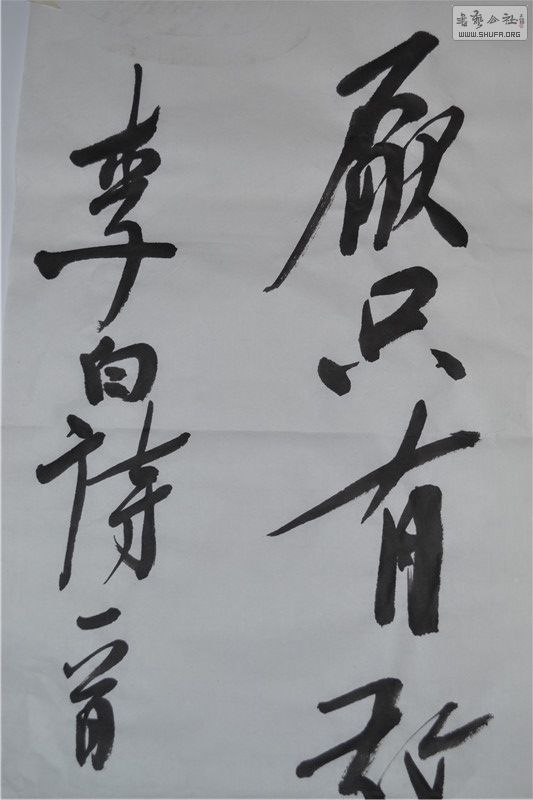 厭只有
李白詩一首
書藝公社
WWW.SHUFA.ORG